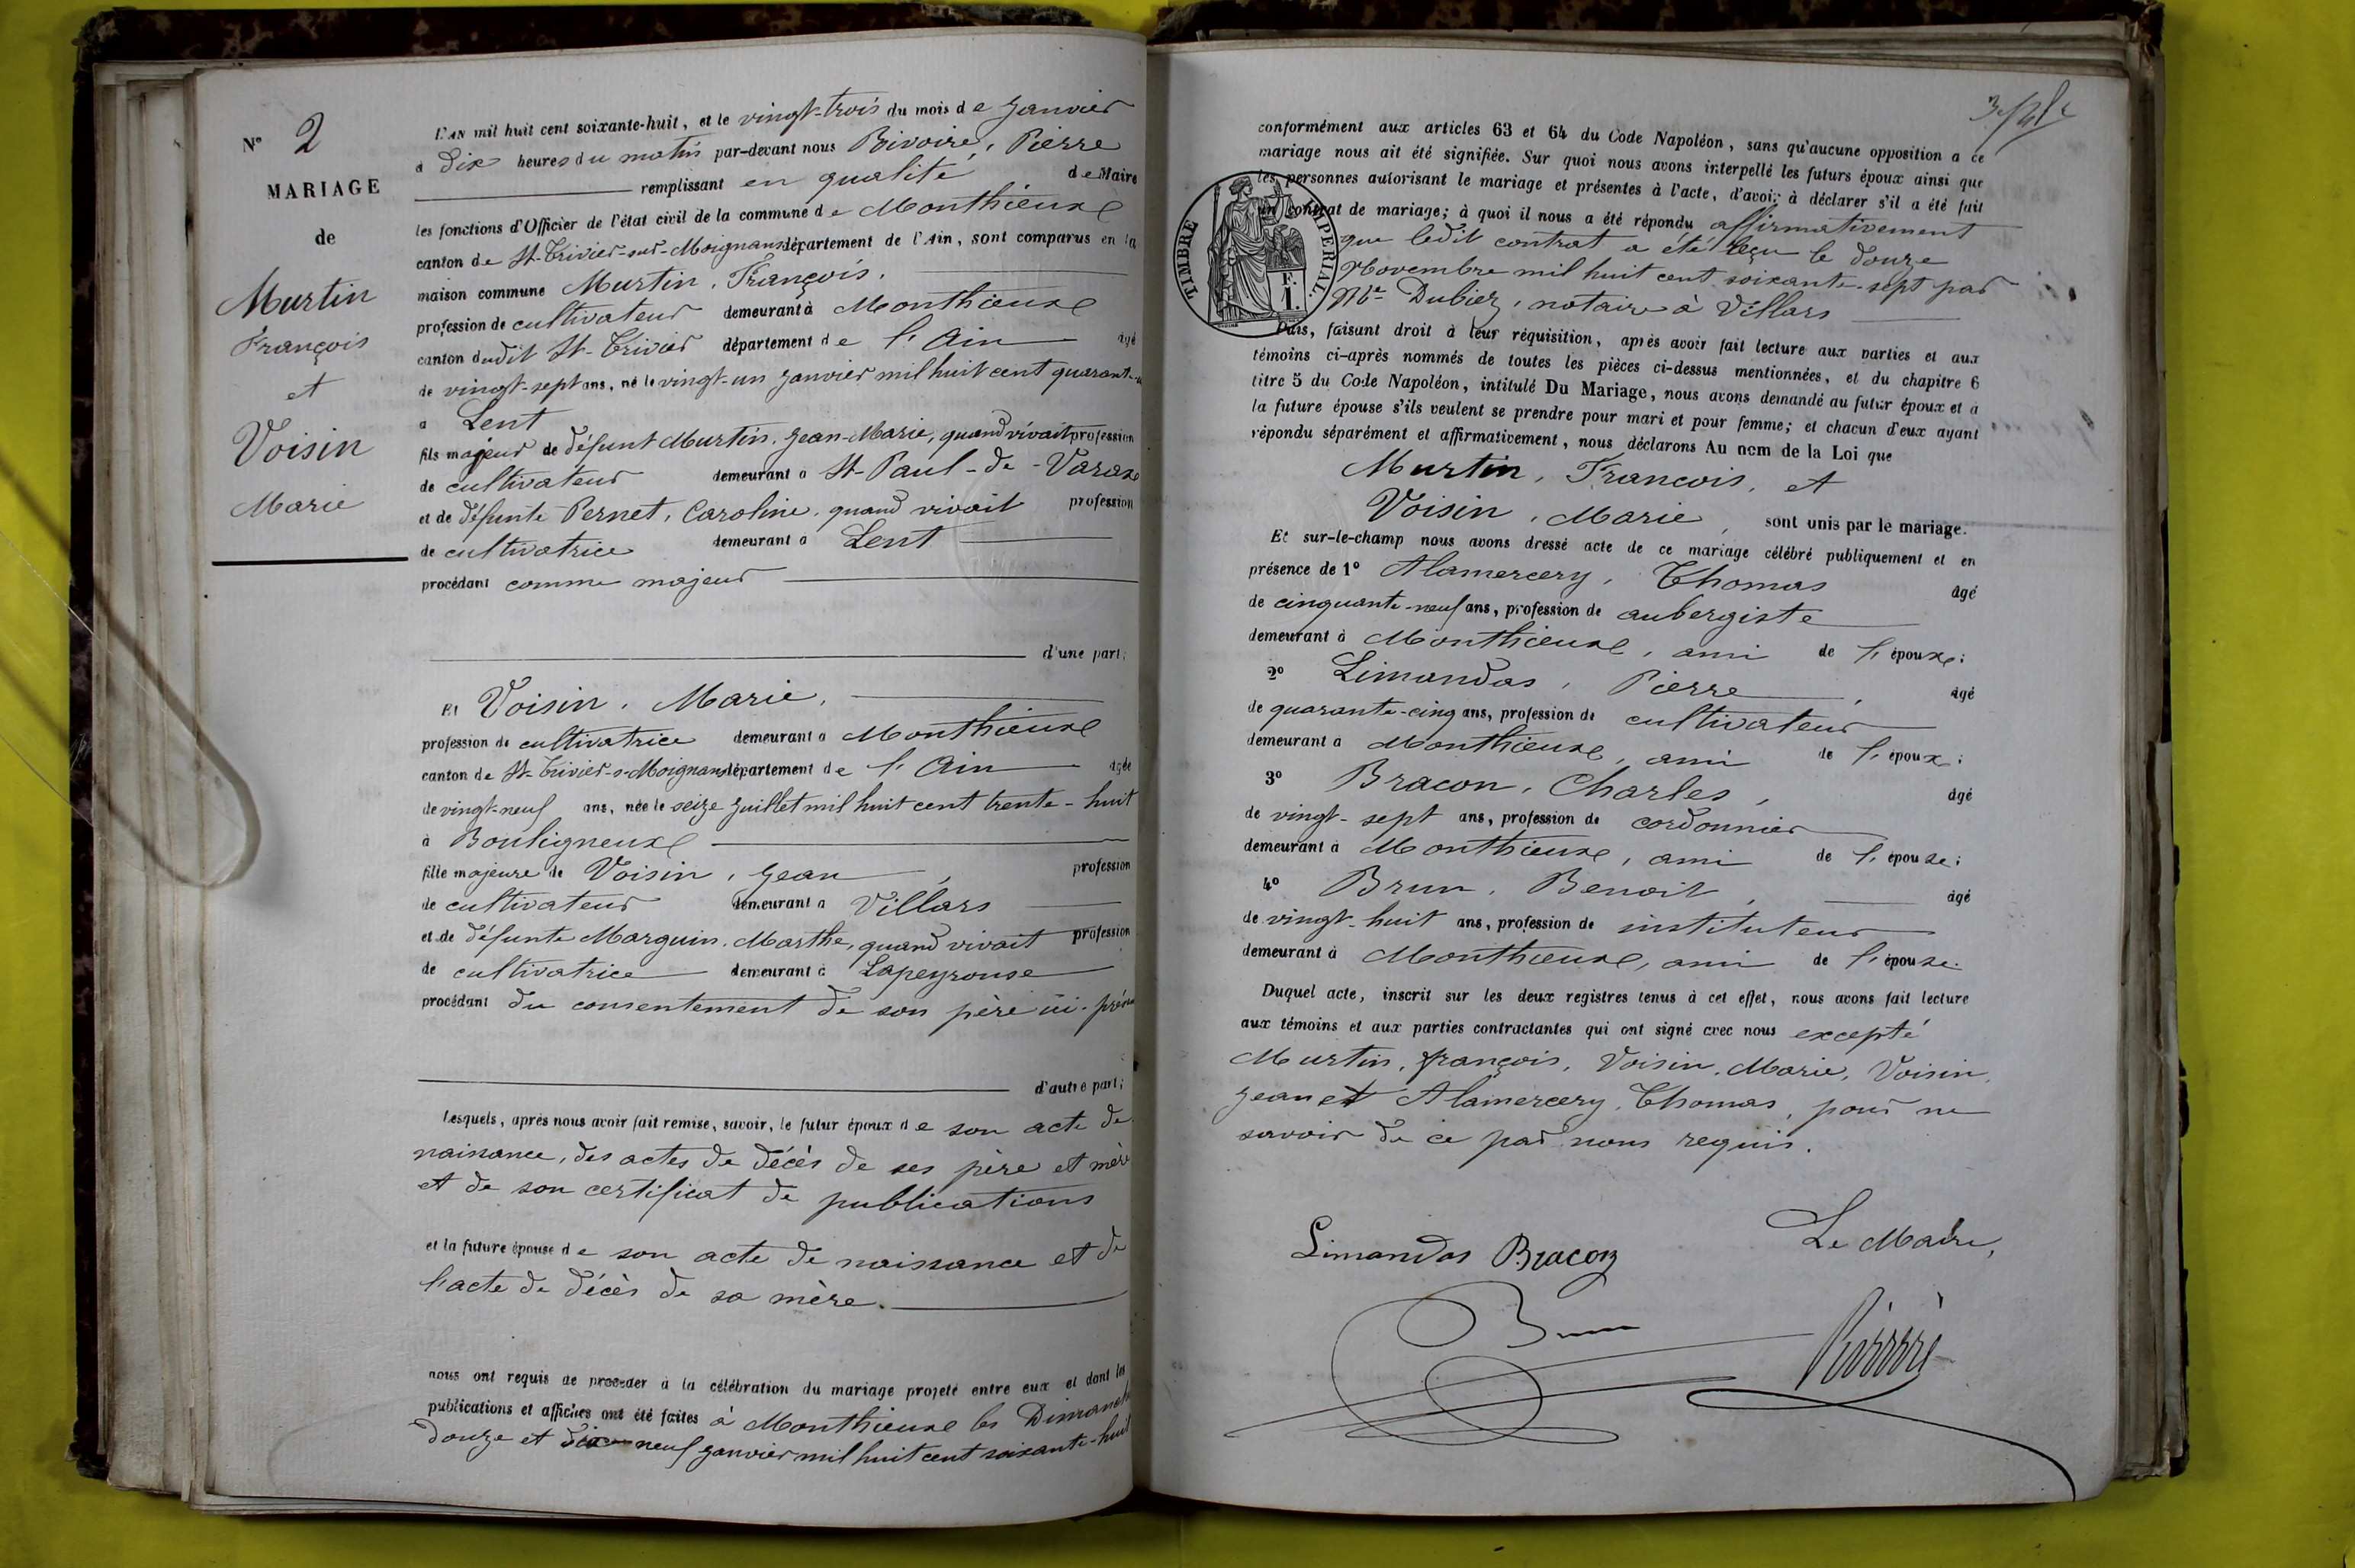 N° 2
MARIAGE
de
Murtin
François
et
Voisin
Marie
L'AN mil huit cent soixante-huit, et le vingt-trois du mois de Janvier
à Dix heures du matin par-devant nous Rivoire, Pierre
remplissant en qualité de Maire
les fonctions d'Officier de l'état civil de la commune de Monthieux
canton de St-Trivier-sur-Moignans département de l'Ain, sont comparus en la
maison commune Murtin, François,
profession de cultivateur demeurant à Monthieux
canton dudit St-Trivier département de l'Ain âgé
de vingt-sept ans, né le vingt-un Janvier mil huit cent quarante-
à Lent
fils majeur de défunt Murtin, Jean-Marie, quand vivait profession
de cultivateur demeurant à St-Paul-de-Varax
et de défunte Pernet, Caroline, quand vivait profession
de cultivatrice demeurant à Lent
procédant comme majeur
d'une part;
Et Voisin, Marie,
profession de cultivatrice demeurant à Monthieux
canton de St-Trivier-s-Moignans département de l'Ain âgée
de vingt-neuf ans, née le seize Juillet mil huit cent trente-huit
à Bouligneux
fille majeure de Voisin, Jean, profession
de cultivateur demeurant à Villars
et de défunte Marguin, Marthe, quand vivait profession
de cultivatrice demeurant à Lapeyrouse
procédant du consentement de son père ici-présen
d'autre part;
Lesquels, après nous avoir fait remise, savoir, le futur époux de son acte de
naissance, des actes de décès de ses père et mère
et de son certificat de publications
et la future épouse de son acte de naissance et de
l'acte de décès de sa mère.
nous ont requis de procéder à la célébration du mariage projeté entre eux et dont les
publications et affiches ont été faites à Monthieux les Dimanche
douze et dix-neuf Janvier mil huit cent soixante-huit
conformément aux articles 63 et 64 du Code Napoléon, sans qu'aucune opposition a ce
mariage nous ait été signifiée. Sur quoi nous avons interpellé les futurs époux ainsi que
les personnes autorisant le mariage et présentes à l'acte, d'avoir à déclarer s'il a été fait
un contrat de mariage; à quoi il nous a été répondu affirmativement
que ledit contrat a été reçu le douze
Novembre mil huit cent soixante-sept par
Me Dubiez, notaire à Villars
TIMBRE IMPERIAL
F.
1.
Puis, faisant droit à leur réquisition, après avoir fait lecture aux parties et aux
témoins ci-après nommés de toutes les pièces ci-dessus mentionnées, et du chapitre 6
titre 5 du Code Napoléon, intitulé Du Mariage, nous avons demandé au futur époux et à
la future épouse s'ils veulent se prendre pour mari et pour femme; et chacun d'eux ayant
répondu séparément et affirmativement, nous déclarons Au nom de la Loi que
Murtin, Francois, et
Voisin, Marie, sont unis par le mariage.
Et sur-le-champ nous avons dressé acte de ce mariage célébré publiquement et en
présence de 1° Alamercery, Thomas âgé
de cinquante-neuf ans, profession de aubergiste
demeurant à Monthieux, ami de l'époux;
2° Limandas, Pierre, âgé
de quarante-cinq ans, profession de cultivateur
demeurant à Monthieux, ami de l'époux;
3° Bracon, Charles, âgé
de vingt-sept ans, profession de cordonnier
demeurant à Monthieux, ami de l'épouse;
4° Brun, Benoit, âgé
de vingt-huit ans, profession de instituteur
demeurant à Monthieux, ami de l'épouse.
Duquel acte, inscrit sur les deux registres tenus à cet effet, nous avons fait lecture
aux témoins et aux parties contractantes qui ont signé avec nous excepté
Murtin, françois, Voisin, Marie, Voisin,
Jean et Alamercery, Thomas, pour ne
savoir de ce par nous requis.
Le Maire,
Limandas Bracon
Brun
Rivoire